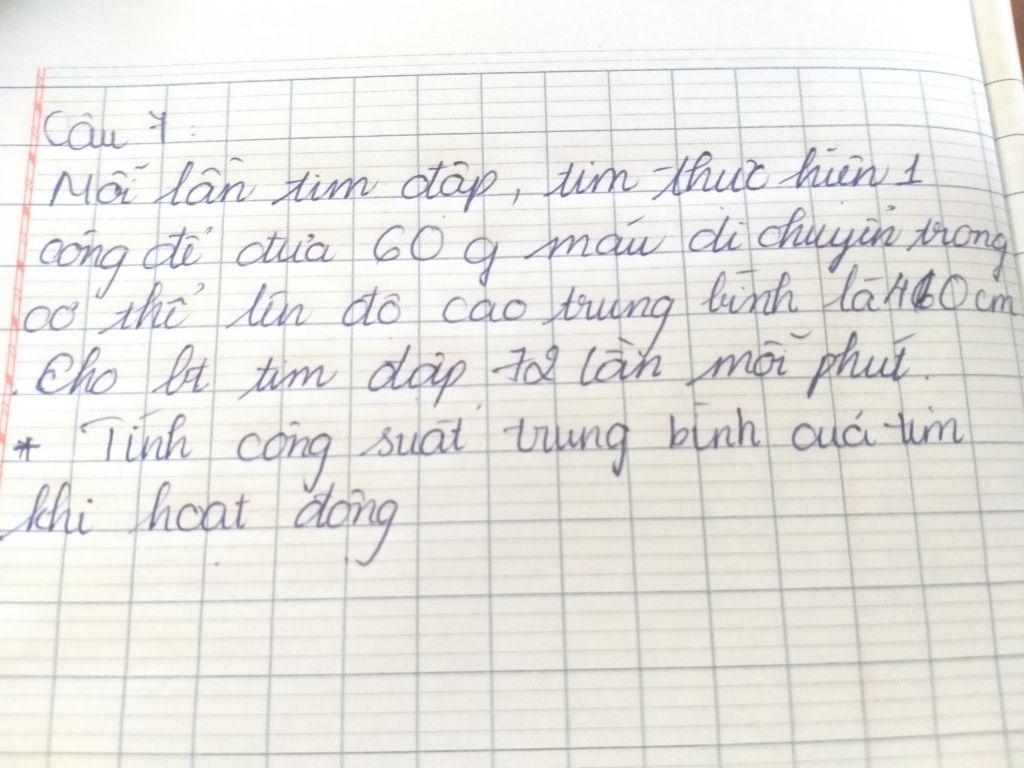 Câu 7:
Mỗi lần tim đập, tim thực hiện 1
công để đưa 60 g máu di chuyển trong
cơ thể lên độ cao trung bình là cm
Cho bt tim đập 72 lần mỗi phút.
* Tính công suất trung bình của tim
khi hoạt động